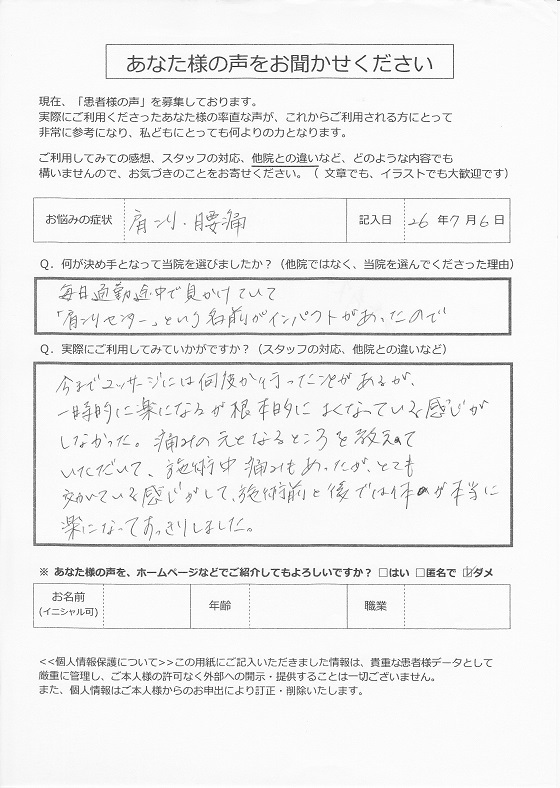 あなた様の声をお聞かせください
現在、「患者様の声」を募集しております。
実際にご利用くださったあなた様の率直な声が、これからご利用される方にとって
非常に参考になり、私どもにとっても何よりの力となります。
ご利用してみての感想、スタッフの対応、他院との違いなど、どのような内容でも
構いませんので、お気づきのことをお寄せください。（ 文章でも、イラストでも大歓迎です）
お悩みの症状 肩こり・腰痛 記入日 26 年 7 月 6 日
Ｑ．何が決め手となって当院を選びましたか？（他院ではなく、当院を選んでくださった理由）
毎日通勤途中で見かけていて
「肩こりセンター」という名前がインパクトがあったので
Ｑ．実際にご利用してみていかがですか？（スタッフの対応、他院との違いなど）
今までマッサージには何度か行ったことがあるが、
一時的に楽になるが根本的によくなっている感じが
しなかった。痛みの元となるところを教えて
いただいて、施術中痛みもあったが、とても
効いている感じがして、施術前と後では体が本当に
楽になってすっきりしました。
※ あなた様の声を、ホームページなどでご紹介してもよろしいですか？ □はい □匿名で ☑ダメ
お名前 年齢 職業
(イニシャル可)
<<個人情報保護について>>この用紙にご記入いただきました情報は、貴重な患者様データとして
厳重に管理し、ご本人様の許可なく外部への開示・提供することは一切ございません。
また、個人情報はご本人様からのお申出により訂正・削除いたします。